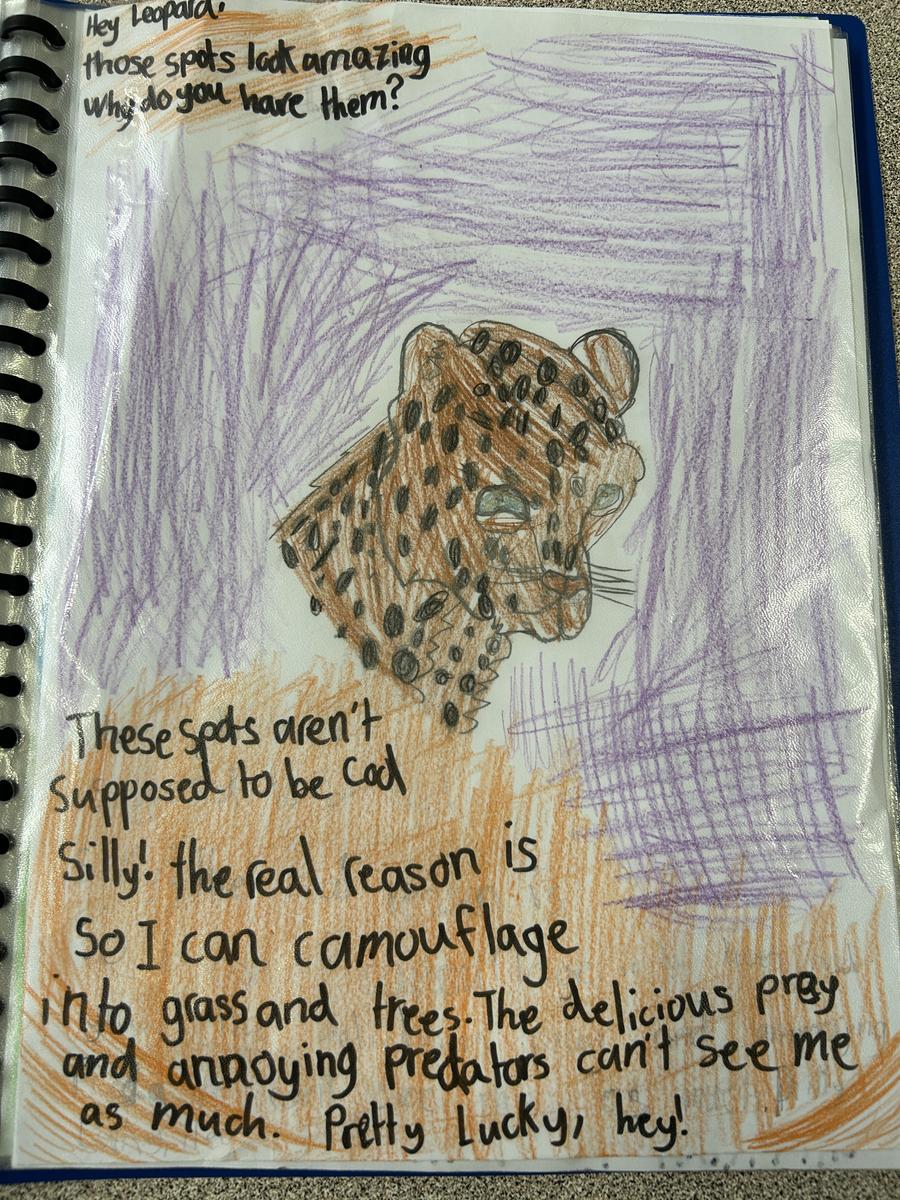 Hey Leopard!
those spots look amazing
why do you have them?
These spots aren't
supposed to be cool
Silly! the real reason is
So I can camouflage
into grass and trees. The delicious prey
and annoying predators can't see me
as much. Pretty Lucky, hey!